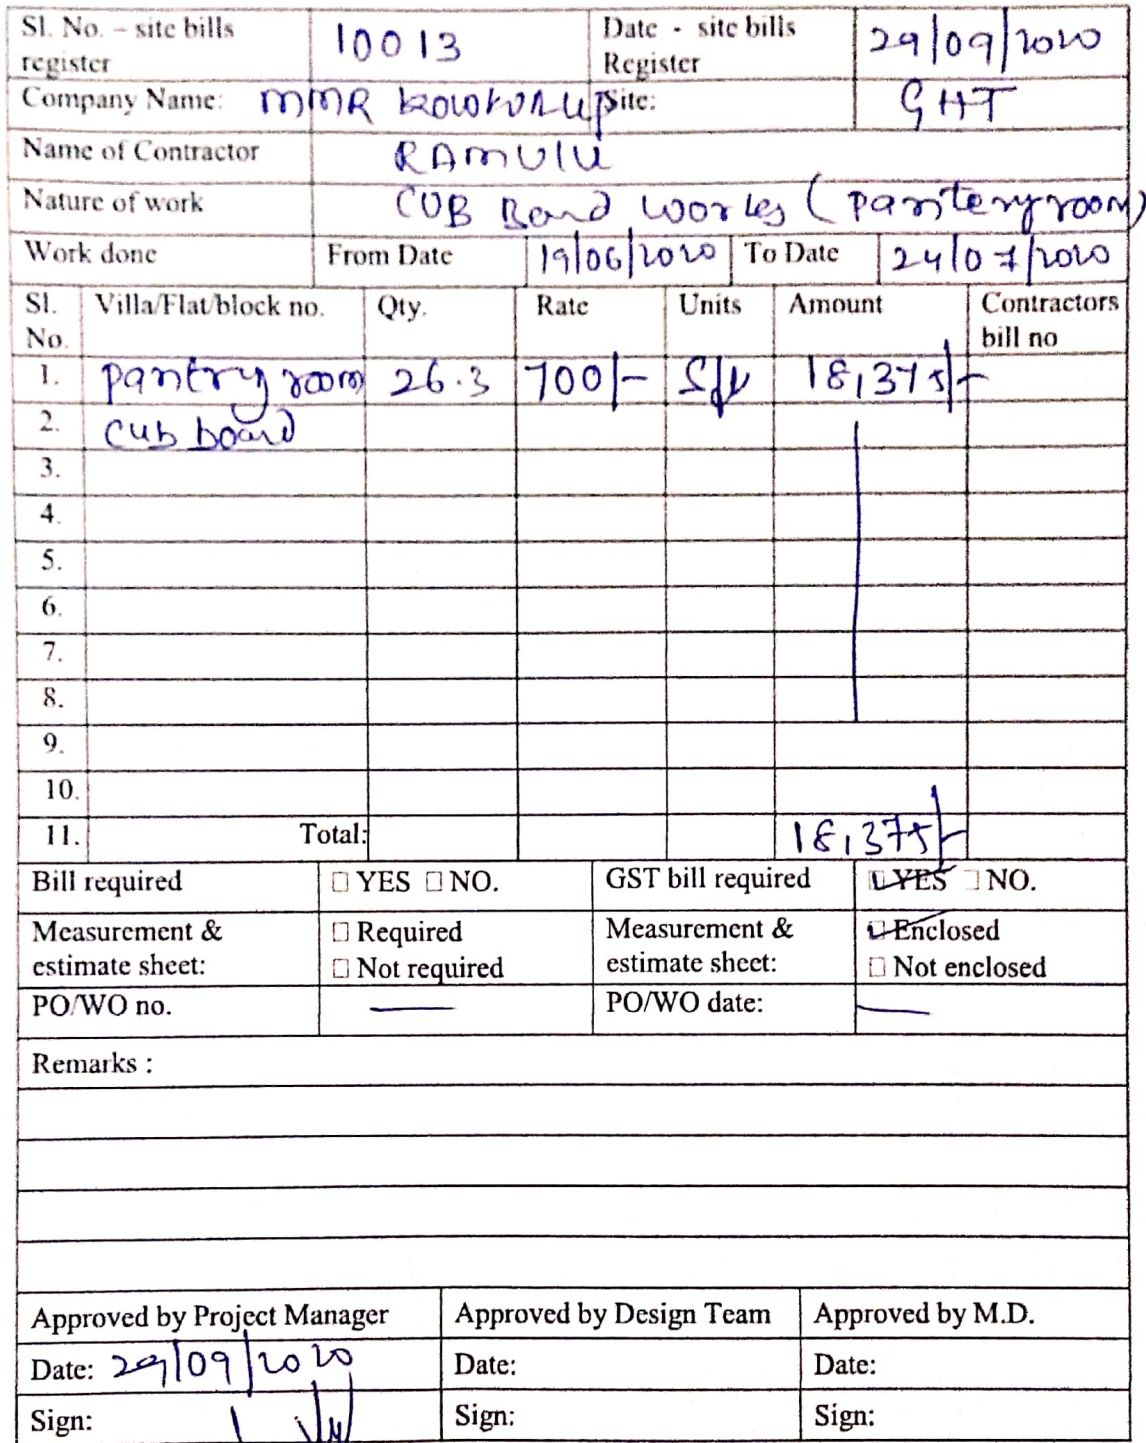 Sl. No. – site bills register 10013 Date - site bills Register 29/09/2020
Company Name: MMR Site: GHT
Name of Contractor RAMULU
Nature of work CUB Board works (Pantery room)
Work done From Date 19/06/2020 To Date 24/07/2020
Sl. No. Villa/Flat/block no. Qty. Rate Units Amount Contractors bill no
1. Pantry room 26.3 700/- Sft 18,375/-
2. Cub board
3.
4.
5.
6.
7.
8.
9.
10.
11. Total: 18,375/-
Bill required ☐ YES ☐ NO. GST bill required ☑ YES ☐ NO.
Measurement & estimate sheet: ☐ Required ☐ Not required Measurement & estimate sheet: ☑ Enclosed ☐ Not enclosed
PO/WO no. — PO/WO date: —
Remarks :
Approved by Project Manager Approved by Design Team Approved by M.D.
Date: 29/09/2020 Date: Date:
Sign: Sign: Sign: